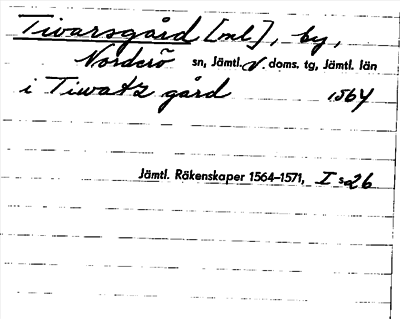 Tivarsgård [ml], by,
Norderö sn, Jämtl. V. doms. tg, Jämtl. län
i Tiwatz gård 1564
Jämtl. Räkenskaper 1564-1571, I s 26